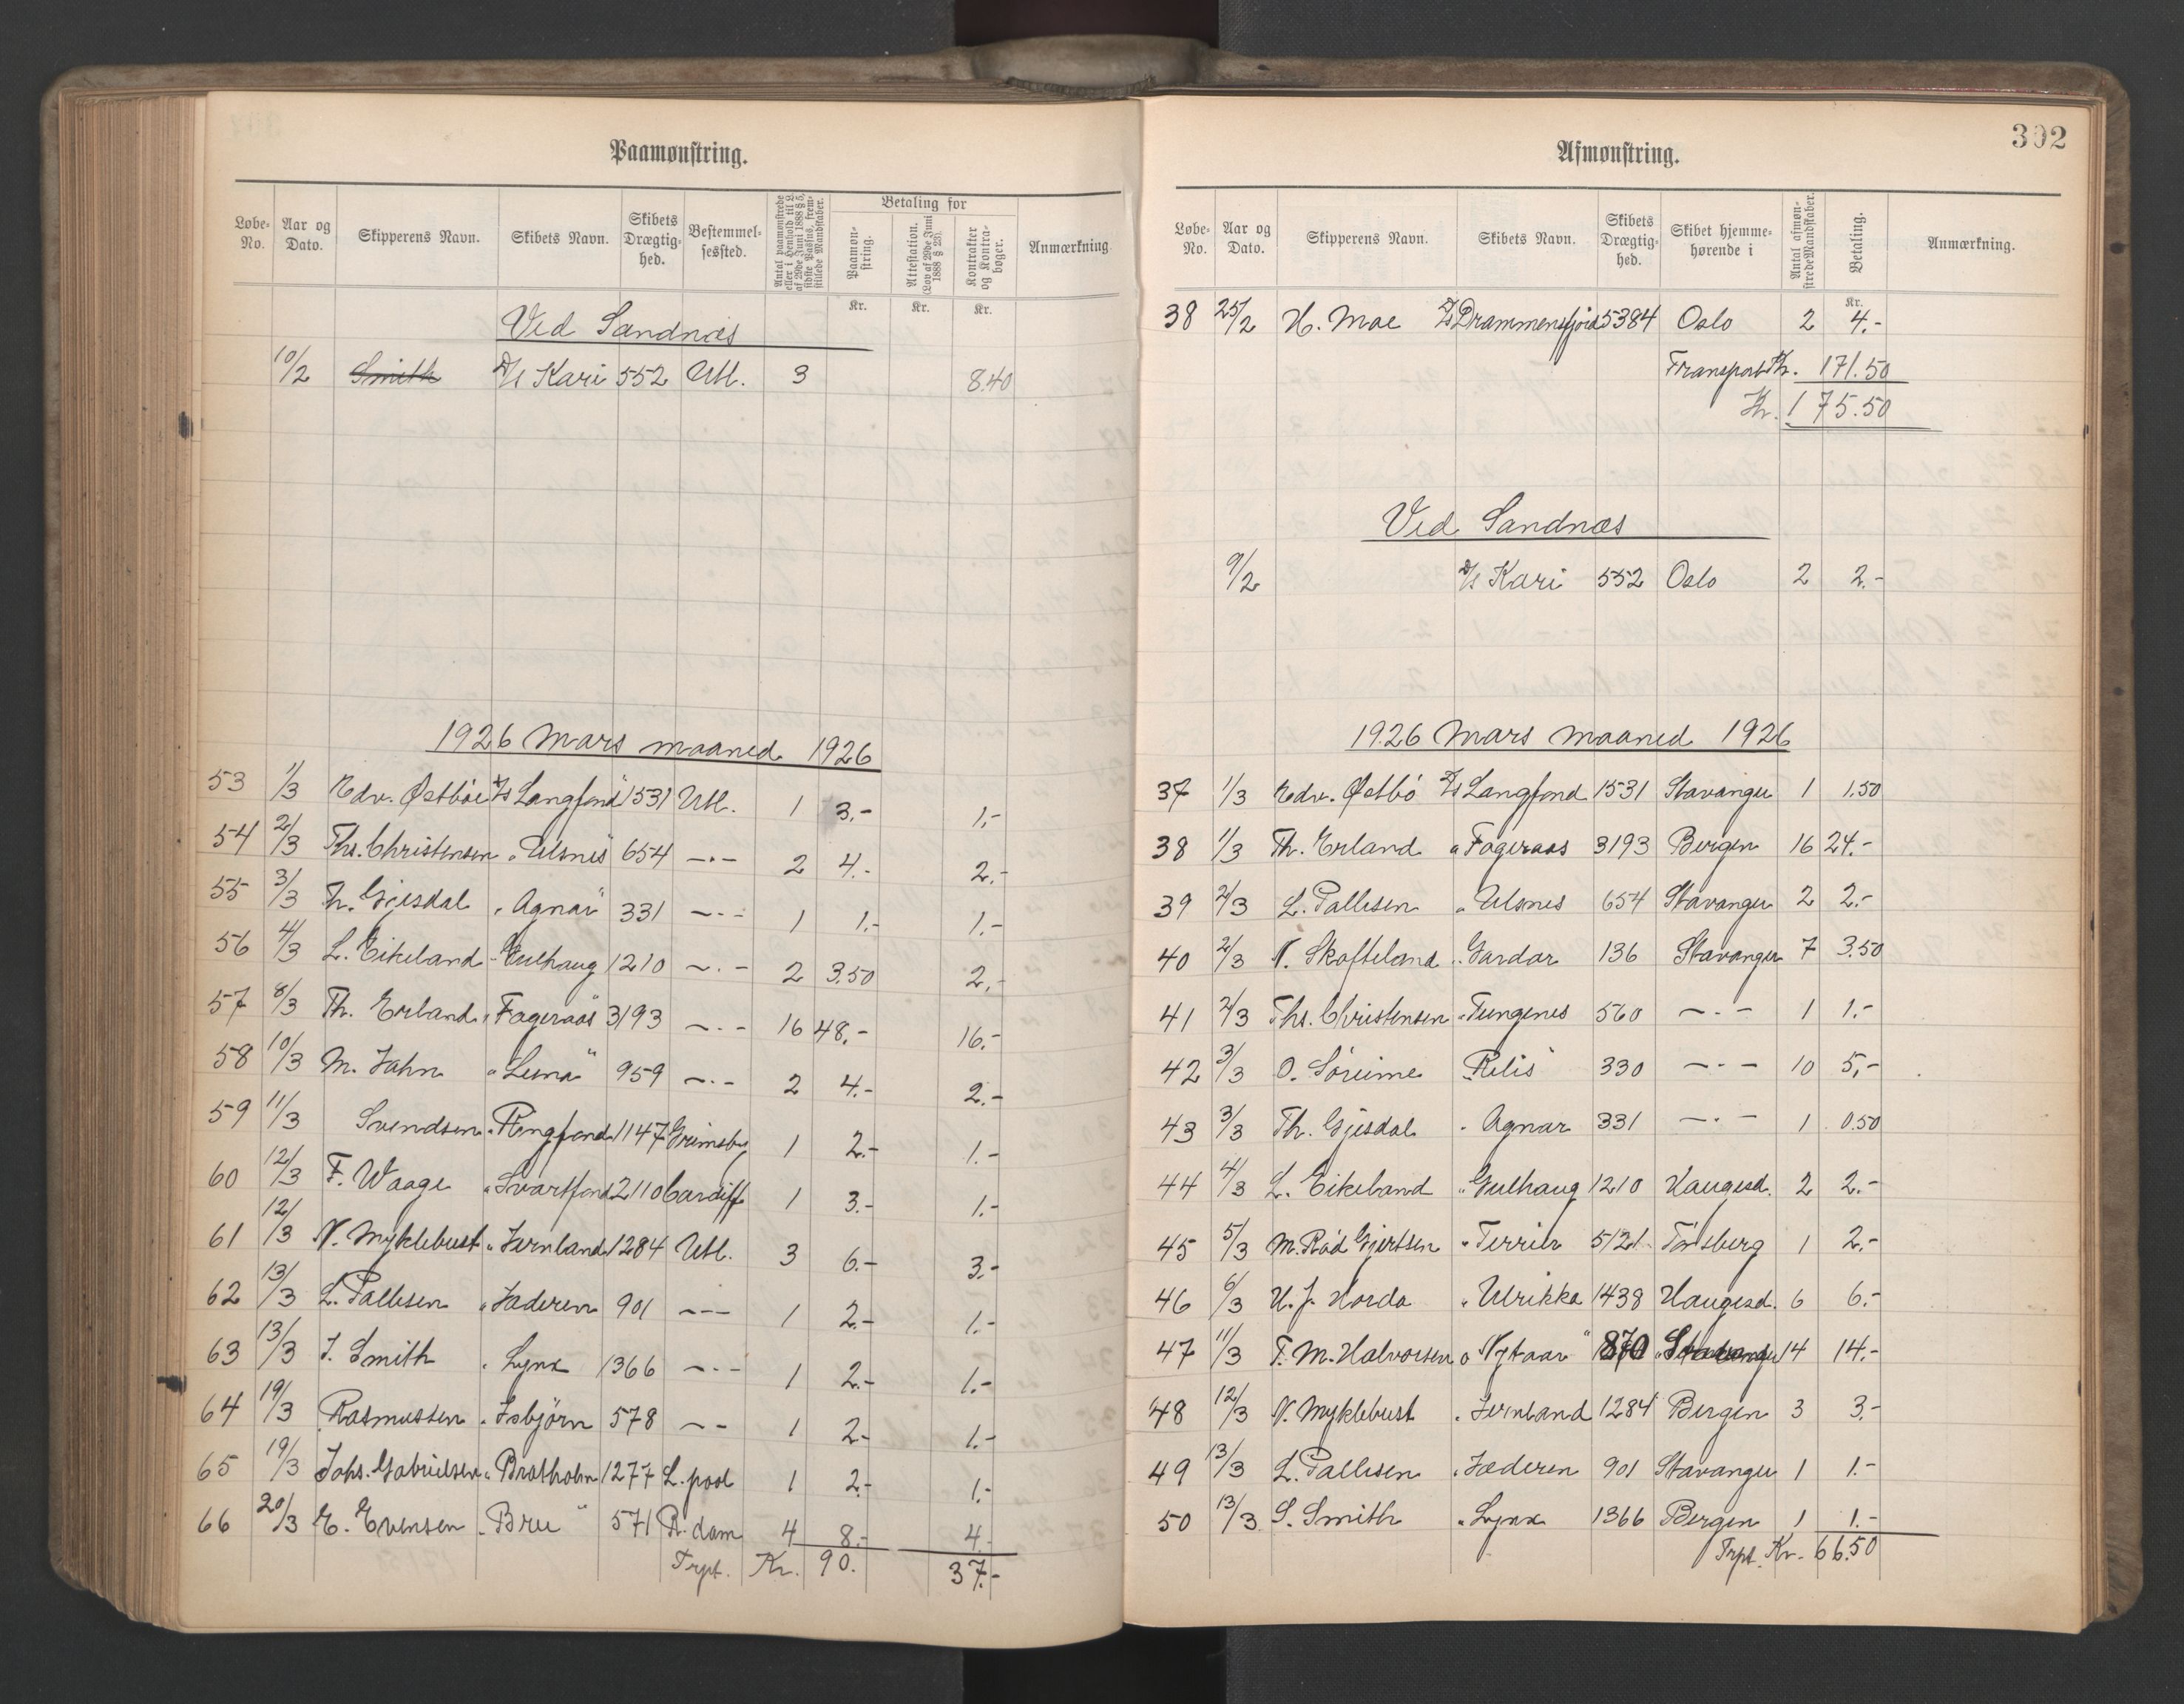 Paamønstring.
Løbe-No. Aar og Dato. Skipperens Navn. Skibets Navn. Skibets Drægtig-hed. Bestemmel-sessted. Antal paamønstrede eller i Henhold til L. af 29de Juni 1888 § 5, sidste Passus, frem-stillede Mandskaber. Betaling for Paamøn-string. Attestation. (Lov af 29de Juni 1888 § 23). Kontrakter og Kontra-bøger. Anmærkning
Kr. Kr. Kr.
Ved Sandnæs
10/2 Smith D/S Kari 552 Utl. 3 8.40
1926 Mars maaned 1926
53 1/3 Edv. Østbøe D/S Langfond 1531 Utl. 1 3.- 1.-
54 2/3 Ths. Christensen " Ulsnes 654 -"- 2 4.- 2.-
55 3/3 Th. Gjesdal " Agnar 331 -"- 1 1.- 1.-
56 4/3 L. Eikeland " Gulhaug 1210 -"- 2 3.50 2.-
57 8/3 Th. Erland " Fageraas 3193 -"- 16 48.- 16.-
58 10/3 M. Jahn " Luna 959 -"- 2 4.- 2.-
59 11/3 Svendsen " Ringfond 1147 Grimsby 1 2.- 1.-
60 12/3 F. Waage " Svartfond 2110 Cardiff 1 3.- 1.-
61 12/3 N. Myklebust " Jernland 1284 Utl. 3 6.- 3.-
62 13/3 L. Pallesen " Jæderen 901 -"- 1 2.- 1.-
63 13/3 S. Smith " Lynx 1366 -"- 1 2.- 1.-
64 19/3 Rasmussen " Isbjørn 578 -"- 1 2.- 1.-
65 19/3 Johs. Gabrielsen " Bratholm 1277 L.pool 1 2.- 1.-
66 20/3 E. Evensen " Bru 571 R.dam 4 8.- 4.-
Trpt. Kr. 90. 37.-
302
Afmønstring.
Løbe-No. Aar og Dato. Skipperens Navn. Skibets Navn. Skibets Drægtig-hed. Skibet hjemme-hørende i Antal afmøn-strede Mandskaber. Betaling. Anmærkning.
Kr.
38 25/2 H. Moe D/S Drammensfjord 5384 Oslo 2 4.-
Transport Kr. 171.50
Kr. 175.50
Ved Sandnæs
9/2 D/S Kari 552 Oslo 2 2.-
1926 Mars maaned 1926
37 1/3 Edv. Østbö D/S Langfond 1531 Stavanger 1 1.50
38 1/3 Th. Erland " Fageraas 3193 Bergen 16 24.-
39 2/3 L. Pallesen " Ulsnes 654 Stavanger 2 2.-
40 2/3 N. Skofteland " Gardar 136 Stavanger 7 3.50
41 2/3 Ths. Christensen " Tungenes 560 -"- 1 1.-
42 3/3 O. Söreime " Relis 330 -"- 10 5.-
43 3/3 Th. Gjesdal " Agnar 331 -"- 1 0.50
44 4/3 L. Eikeland " Gulhaug 1210 Haugesd. 2 2.-
45 5/3 M. Röd Gjertsen " Terrier 5121 Tönsberg 1 2.-
46 6/3 H. J. Horda " Ulrikka 1438 Haugesd. 6 6.-
47 11/3 T. M. Halvorsen " Nytaar 870 Stavanger 14 14.-
48 12/3 N. Myklebust " Jernland 1284 Bergen 3 3.-
49 13/3 L. Pallesen " Jæderen 901 Stavanger 1 1.-
50 13/3 S. Smith " Lynx 1366 Bergen 1 1.-
Trpt. Kr. 66.50